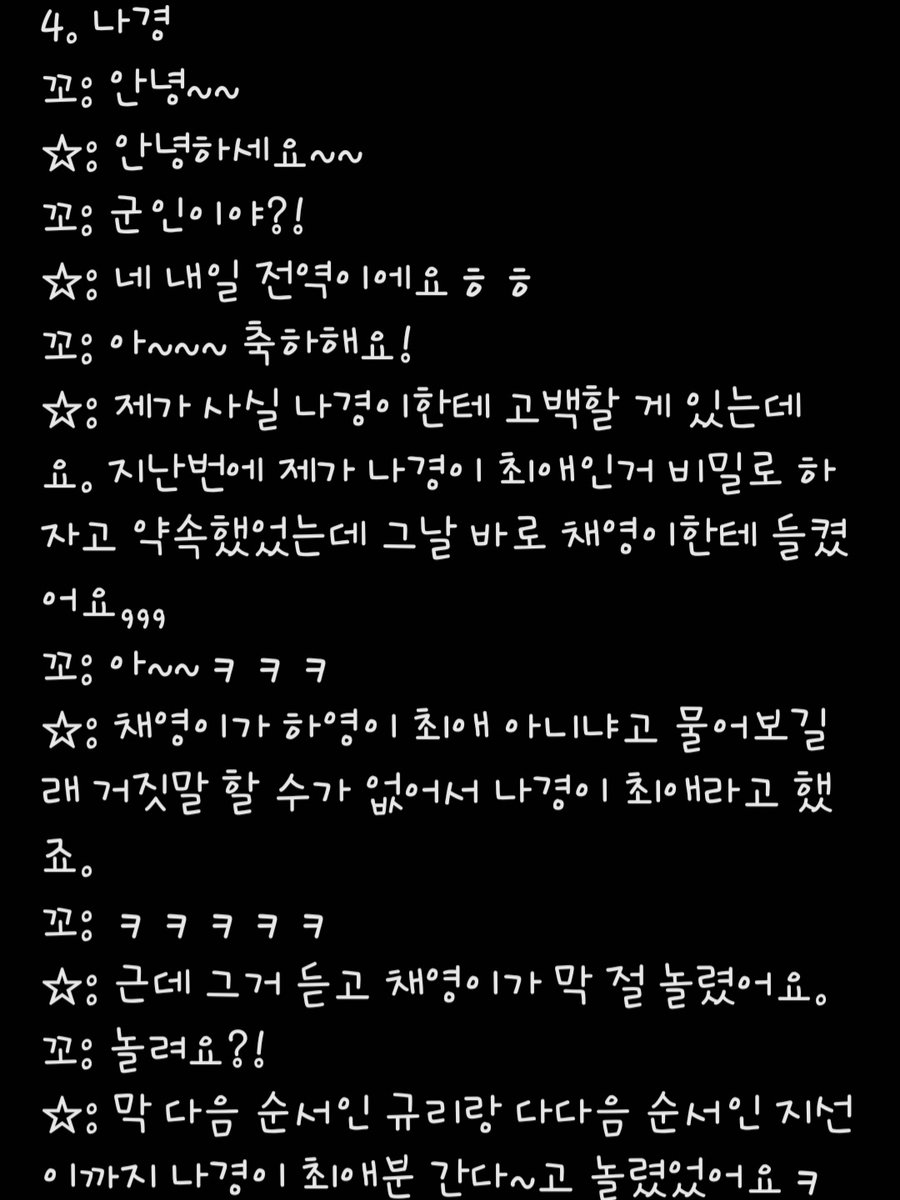 4. 나경
꼬: 안녕~~
☆: 안녕하세요~~
꼬: 군인이야?!
☆: 네 내일 전역이에요 ㅎ ㅎ
꼬: 아~~~ 축하해요!
☆: 제가 사실 나경이한테 고백할 게 있는데
요. 지난번에 제가 나경이 최애인거 비밀로 하
자고 약속했었는데 그날 바로 채영이한테 들켰
어요,,,
꼬: 아~~ㅋ ㅋ ㅋ
☆: 채영이가 하영이 최애 아니냐고 물어보길
래 거짓말 할 수가 없어서 나경이 최애라고 했
죠.
꼬: ㅋ ㅋ ㅋ ㅋ ㅋ
☆: 근데 그거 듣고 채영이가 막 절 놀렸어요.
꼬: 놀려요?!
☆: 막 다음 순서인 규리랑 다다음 순서인 지선
이까지 나경이 최애분 간다~고 놀렸었어요 ㅋ